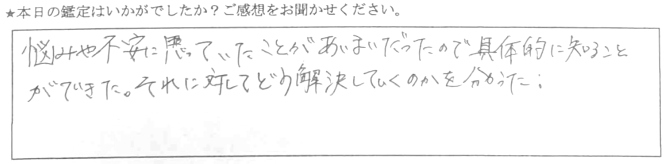 ★本日の鑑定はいかがでしたか？ご感想をお聞かせください。
悩みや不安に思っていたことがあいまいだったので具体的に知ること
ができた。それに対してどう解決していくのかを分かった！